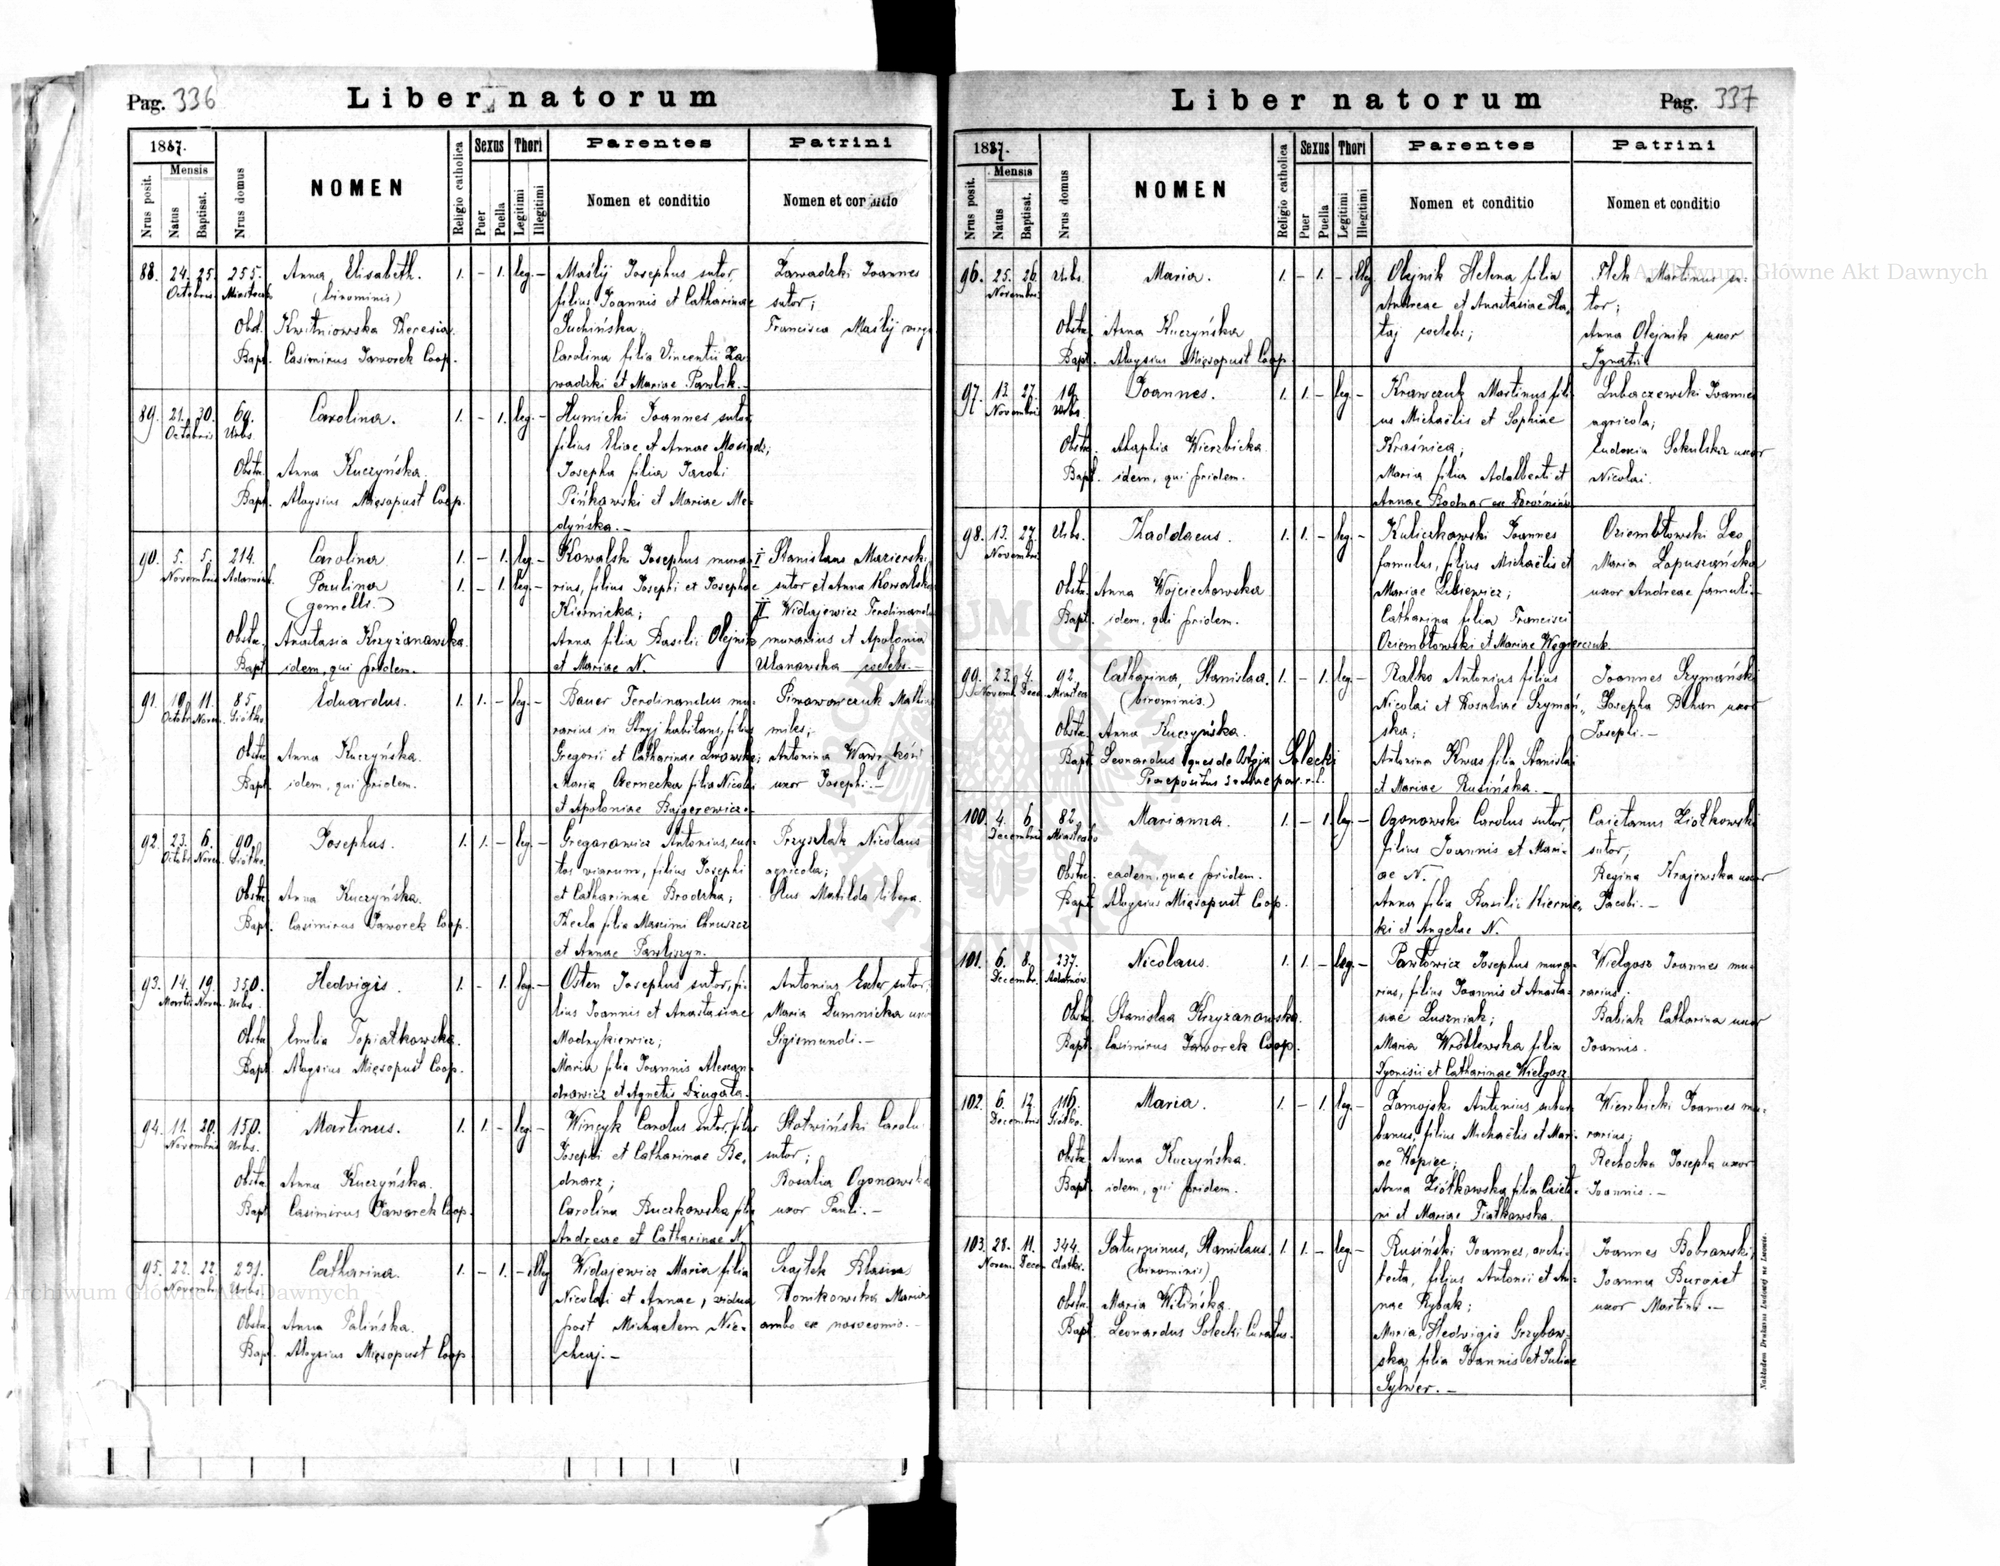 Pag. 336
Liber natorum
1887.
Nrus posit.
Mensis
Natus
Baptisat.
Nrus domus
NOMEN
Religio catholica
Sexus
Puer
Puella
Thori
Legitimi
Illegitimi
Parentes
Nomen et conditio
Patrini
Nomen et conditio
88. 24. 25. 255. Anna Elisabeth. 1. - 1. leg. - Maślij Josephus sutor, Zawadzki Joannes
Octobris (binominis) filius Joannis et Catharinae sutor;
Obst. Kwitniowska Theresia. Suchińska, Francisca Maślij virgo
Bapt. Casimirus Jaworek Coop. Carolina filia Vincentii Za-
wadzki et Mariae Pawlik. -
89. 21. 30. 69. Carolina. 1. - 1. leg. - Humicki Joannes sutor
Octobris Urbs. filius Eliae et Annae
Obstr. Anna Kuczyńska. Josepha filia Jacobi
Bapt. Aloysius Mięsopust Coop. Pińkowski et Mariae Me-
dyńska. -
90. 5. 5. 214. Carolina 1. - 1. leg. - Kowalski Josephus mura- I Stanislaus Mazierski
Novembris Paulina 1. - 1. leg. - rius, filius Josephi et Josephae sutor et Anna Kowalska
(gemelli.) Kiernicka; II Widajewicz Ferdinandus
Obstr. Anastasia Krzyżanowska. Anna filia Basilii Olejnik murarius et Apolonia
Bapt. idem, qui pridem. et Mariae N. Ulanowska coelebs. -
91. 19. 11. 85. Eduardus. 1. 1. - leg. - Bauer Ferdinandus mu-
Octobr. Novem. rarius in Stryj habitans, filius miles;
Obstr. Anna Kuczyńska. Gregorii et Catharinae Antonina
Bapt. idem, qui pridem. Maria Czernecka filia Nicolai uxor Josephi. -
et Apoloniae
92. 23. 6. 90. Josephus. 1. 1. - leg. - Gregorowicz Antonius, cus- Przysztak Nicolaus
Octobr. Novem. tos viarum, filius Josephi agricola;
Obstr. Anna Kuczyńska. et Catharinae Brodzka; Matilda libera.
Bapt. Casimirus Jaworek Coop. Thecla filia Maximi Chruszcz
et Annae Pawliszyn.
93. 14. 19. 350. Hedvigis. 1. - 1. leg. - Osten Josephus sutor, fi- Antonius sutor;
Novem. Urbs. lius Joannis et Anastasiae Maria Dumnicka uxor
Obstr. Emilia Topiatkowska. Modnykiewicz; Sigismundi. -
Bapt. Aloysius Mięsopust Coop. Maria filia Joannis Alexan-
drowicz et Agnetis Dzugała.
94. 11. 20. 150. Martinus. 1. 1. - leg. - Wińcyk Carolus sutor, filius Słotwiński Carolus
Novembris Urbs. Josephi et Catharinae Be- sutor;
Obstr. Anna Kuczyńska. dnarz; Rosalia Ogonowska
Bapt. Casimirus Jaworek Coop. Carolina Buczkowska filia uxor Pauli. -
Andreae et Catharinae N.
95. 22. 22. 231. Catharina. 1. - 1. - illeg. Widajewicz Maria filia Szajtek Blasius
Novembr. Urbs. Nicolai et Annae, vidua Tomkowska Maria
Obstr. Anna Palińska. post Michaelem Nie- ambo ex nosocomio. -
Bapt. Aloysius Mięsopust Coop. chaj. -
Liber natorum
Pag. 337
1887.
Nrus posit.
Mensis
Natus
Baptisat.
Nrus domus
NOMEN
Religio catholica
Sexus
Puer
Puella
Thori
Legitimi
Illegitimi
Parentes
Nomen et conditio
Patrini
Nomen et conditio
96. 25. 26. Urbs. Maria. 1. - 1. - illeg. Olejnik Helena filia Martinus su-
Novembris Andreae et Anastasiae Ha- tor;
Obstr. Anna Kuczyńska taj coelebs; Anna Olejnik uxor
Bapt. Aloysius Mięsopust Coop. Ignatii
97. 13. 27. 19. Joannes. 1. 1. - leg. - Krawczuk Martinus fili- Lubaczewski Joannes
Novembris Urbs. us Michaëlis et Sophiae agricola;
Obstr. Ahaphia Wierzbicka Kraśnica; Eudoxia Sokulska uxor
Bapt. idem, qui pridem. Maria filia Adalberti et Nicolai.
Annae Bodnar
98. 13. 27. Urbs. Thaddaeus. 1. 1. - leg. - Kuliczkowski Joannes Oziembłowski Leo
Novembris famulus, filius Michaëlis et Maria Łopuszańska
Obstr. Anna Wojciechowska Mariae uxor Andreae famuli. -
Bapt. idem, qui pridem. Catharina filia Francisci
Oziembłowski et Mariae Węgierczuk.
99. 23. 4. 92. Catharina, Stanislaa. 1. - 1. leg. - Ratko Antonius filius Joannes Szymański
Novemb. Dece. (binominis.) Nicolai et Rosaliae Szymań- Josepha Bchan uxor
Obstr. Anna Kuczyńska. ska; Josephi. -
Bapt. Leonardus Eques de Solecki Antonina Kwas filia Stanislai
Praepositus et Mariae Rusińska. -
100. 4. 6. 82. Marianna. 1. - 1. leg. - Ogonowski Carolus sutor, Caietanus Ziółkowski
Decembris filius Joannis et Mari- sutor;
Obstr. eadem, quae pridem. ae N. Regina Krajewska uxor
Bapt. Aloysius Mięsopust Coop. Anna filia Basilii Kiernic- Jacobi. -
ki et Angelae N.
101. 6. 8. 237. Nicolaus. 1. 1. - leg. - Pawłowicz Josephus mura- Wielgosz Joannes mu-
Decembr. rius, filius Joannis et Anasta- rarius;
Obstr. Stanislaa Krzyżanowska. siae Luszniak; Babiak Catharina uxor
Bapt. Casimirus Jaworek Coop. Maria Wróblewska filia Joannis.
Dyonisii et Catharinae Wielgosz.
102. 6. 12. 116. Maria. 1. - 1. leg. - Zamojski Antonius subur- Wierzbicki Joannes mu-
Decembris banus, filius Michaëlis et Mari- rarius;
Obstr. Anna Kuczyńska. ae Kopiec; Rechocka Josepha uxor
Bapt. idem, qui pridem. Anna Ziółkowska filia Caieta- Joannis. -
ni et Mariae Fiałkowska.
103. 28. 11. 344. Saturninus, Stanislaus. 1. 1. - leg. - Rusiński Joannes, archi- Joannes Bobrowski;
Novem. Dece. (binominis) tecta, filius Antonii et An- Joanna
Obstr. Maria Wilińska. nae Rybak; uxor Martini. -
Bapt. Leonardus Solecki Curatus. Maria, Hedvigis Grzybow-
ska, filia Joannis et Juliae
Sylwer. -
Nakładem Drukarni Ludowej we Lwowie.
Archiwum Główne Akt Dawnych
Archiwum Główne Akt Dawnych